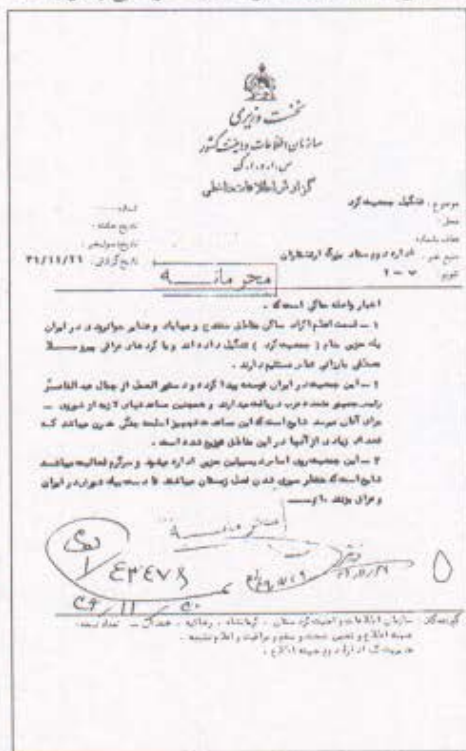 نخست وزیری
سازمان اطلاعات و امنیت کشور
س.ا.و.ا.ک
گزارش اطلاعات داخلی
موضوع : تشکیل جمعیت کرد
محل :
منبع خبر : اداره دوم ستاد بزرگ ارتشتاران
تقویم :
شماره :
تاریخ حادثه :
تاریخ گزارش :
محرمانه
اخبار واصله حاکی است که :
۱ - قسمت اعظم اکراد ساکن مناطق سنندج و مهاباد و عشایر جوانرود در ایران
یک حزبی بنام ( جمعیت کرد ) تشکیل داده اند و با کردهای عراقی پیرو ملا
مصطفی بارزانی تماس مستقیم دارند .
۲ - این جمعیت در ایران توسعه پیدا کرده و دستور العمل از جمال عبدالناصر
رئیس جمهور متحده عرب دریافت میدارند و همچنین مساعدتهای لازمه از شوروی -
برای آنان میرسد شایع است که این مساعدت تجهیز اسلحه جنگی مدرن میباشد که
تعداد زیادی از آنها در این مناطق توزیع شده است .
۳ - این جمعیت روی اساس دیسیپلین حزبی اداره میشود و سرگرم فعالیت میباشند
شایع است که منتظر سپری شدن فصل زمستان میباشند تا دست بیک شورش در ایران
و عراق بزنند
محرمانه
۴۳۴۷۸
گیرندگان : سازمان اطلاعات و امنیت کردستان - کرمانشاه - رضائیه
جهت اطلاع و تعیین صحت و سقم و مراقبت و اعلام نتیجه .
مدیریت کل اداره دوم جهت اطلاع .